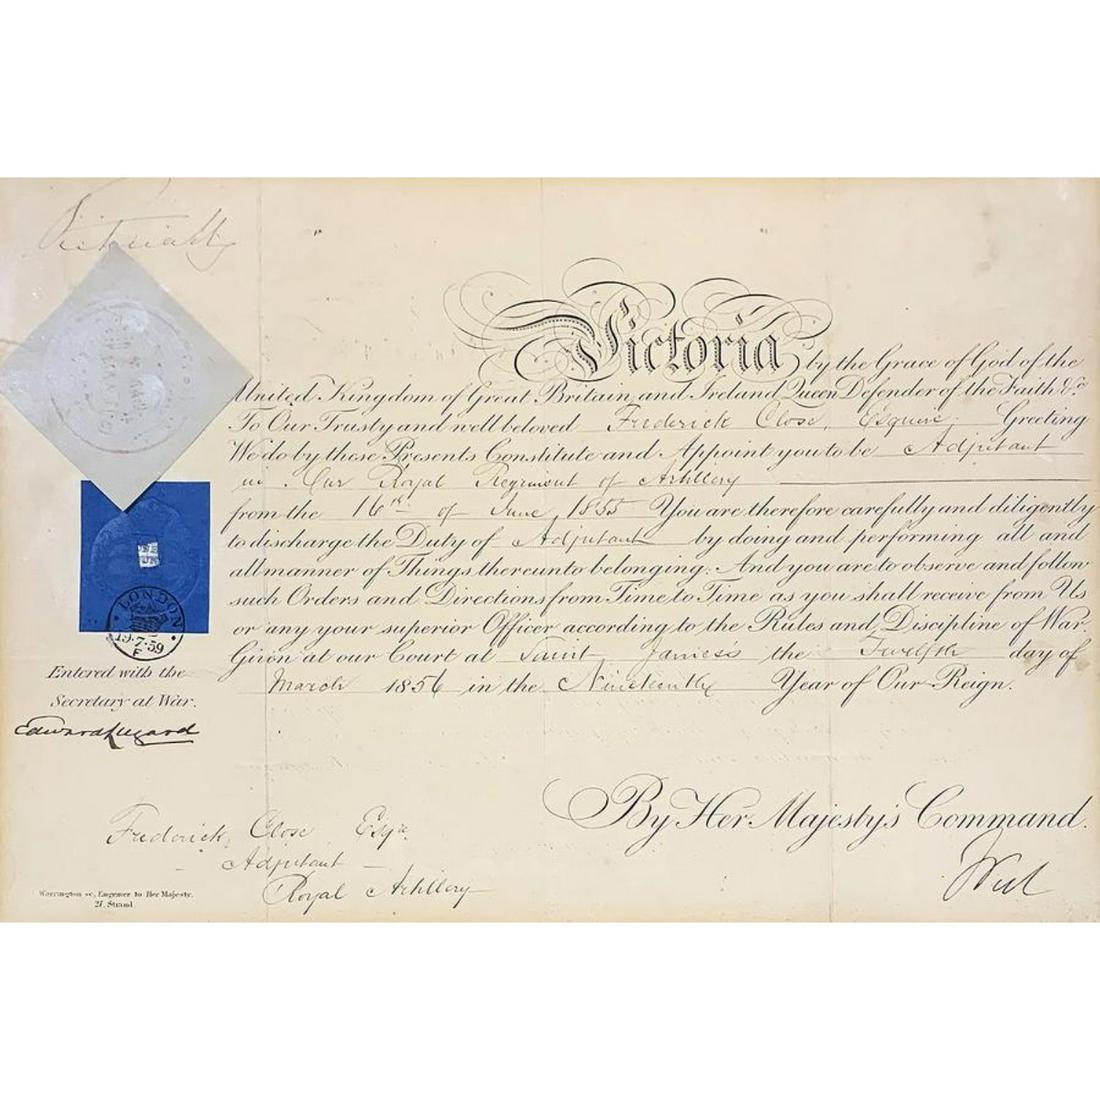 Victoria R
Victoria by the Grace of God of the
United Kingdom of Great Britain and Ireland Queen Defender of the Faith &c.
To Our Trusty and wellbeloved Frederick Close, Esquire, Greeting
We do by these Presents Constitute and Appoint you to be Adjutant
in Our Royal Regiment of Artillery
from the 16th of June, 1855 You are therefore carefully and diligently
to discharge the Duty of Adjutant by doing and performing all and
all manner of Things thereunto belonging: And you are to observe and follow
such Orders and Directions from Time to Time as you shall receive from Us
or any your superior Officer according to the Rules and Discipline of War.
Given at our Court at Saint James's the Twelfth day of
March 1856 in the Nineteenth Year of Our Reign.
LONDON
19·7·59
F
Entered with the
Secretary at War.
Edward Lugard
By Her Majesty's Command.
Frederick Close Esqre.
Adjutant
Royal Artillery
Warrington sc. Engraver to Her Majesty.
27, Strand.